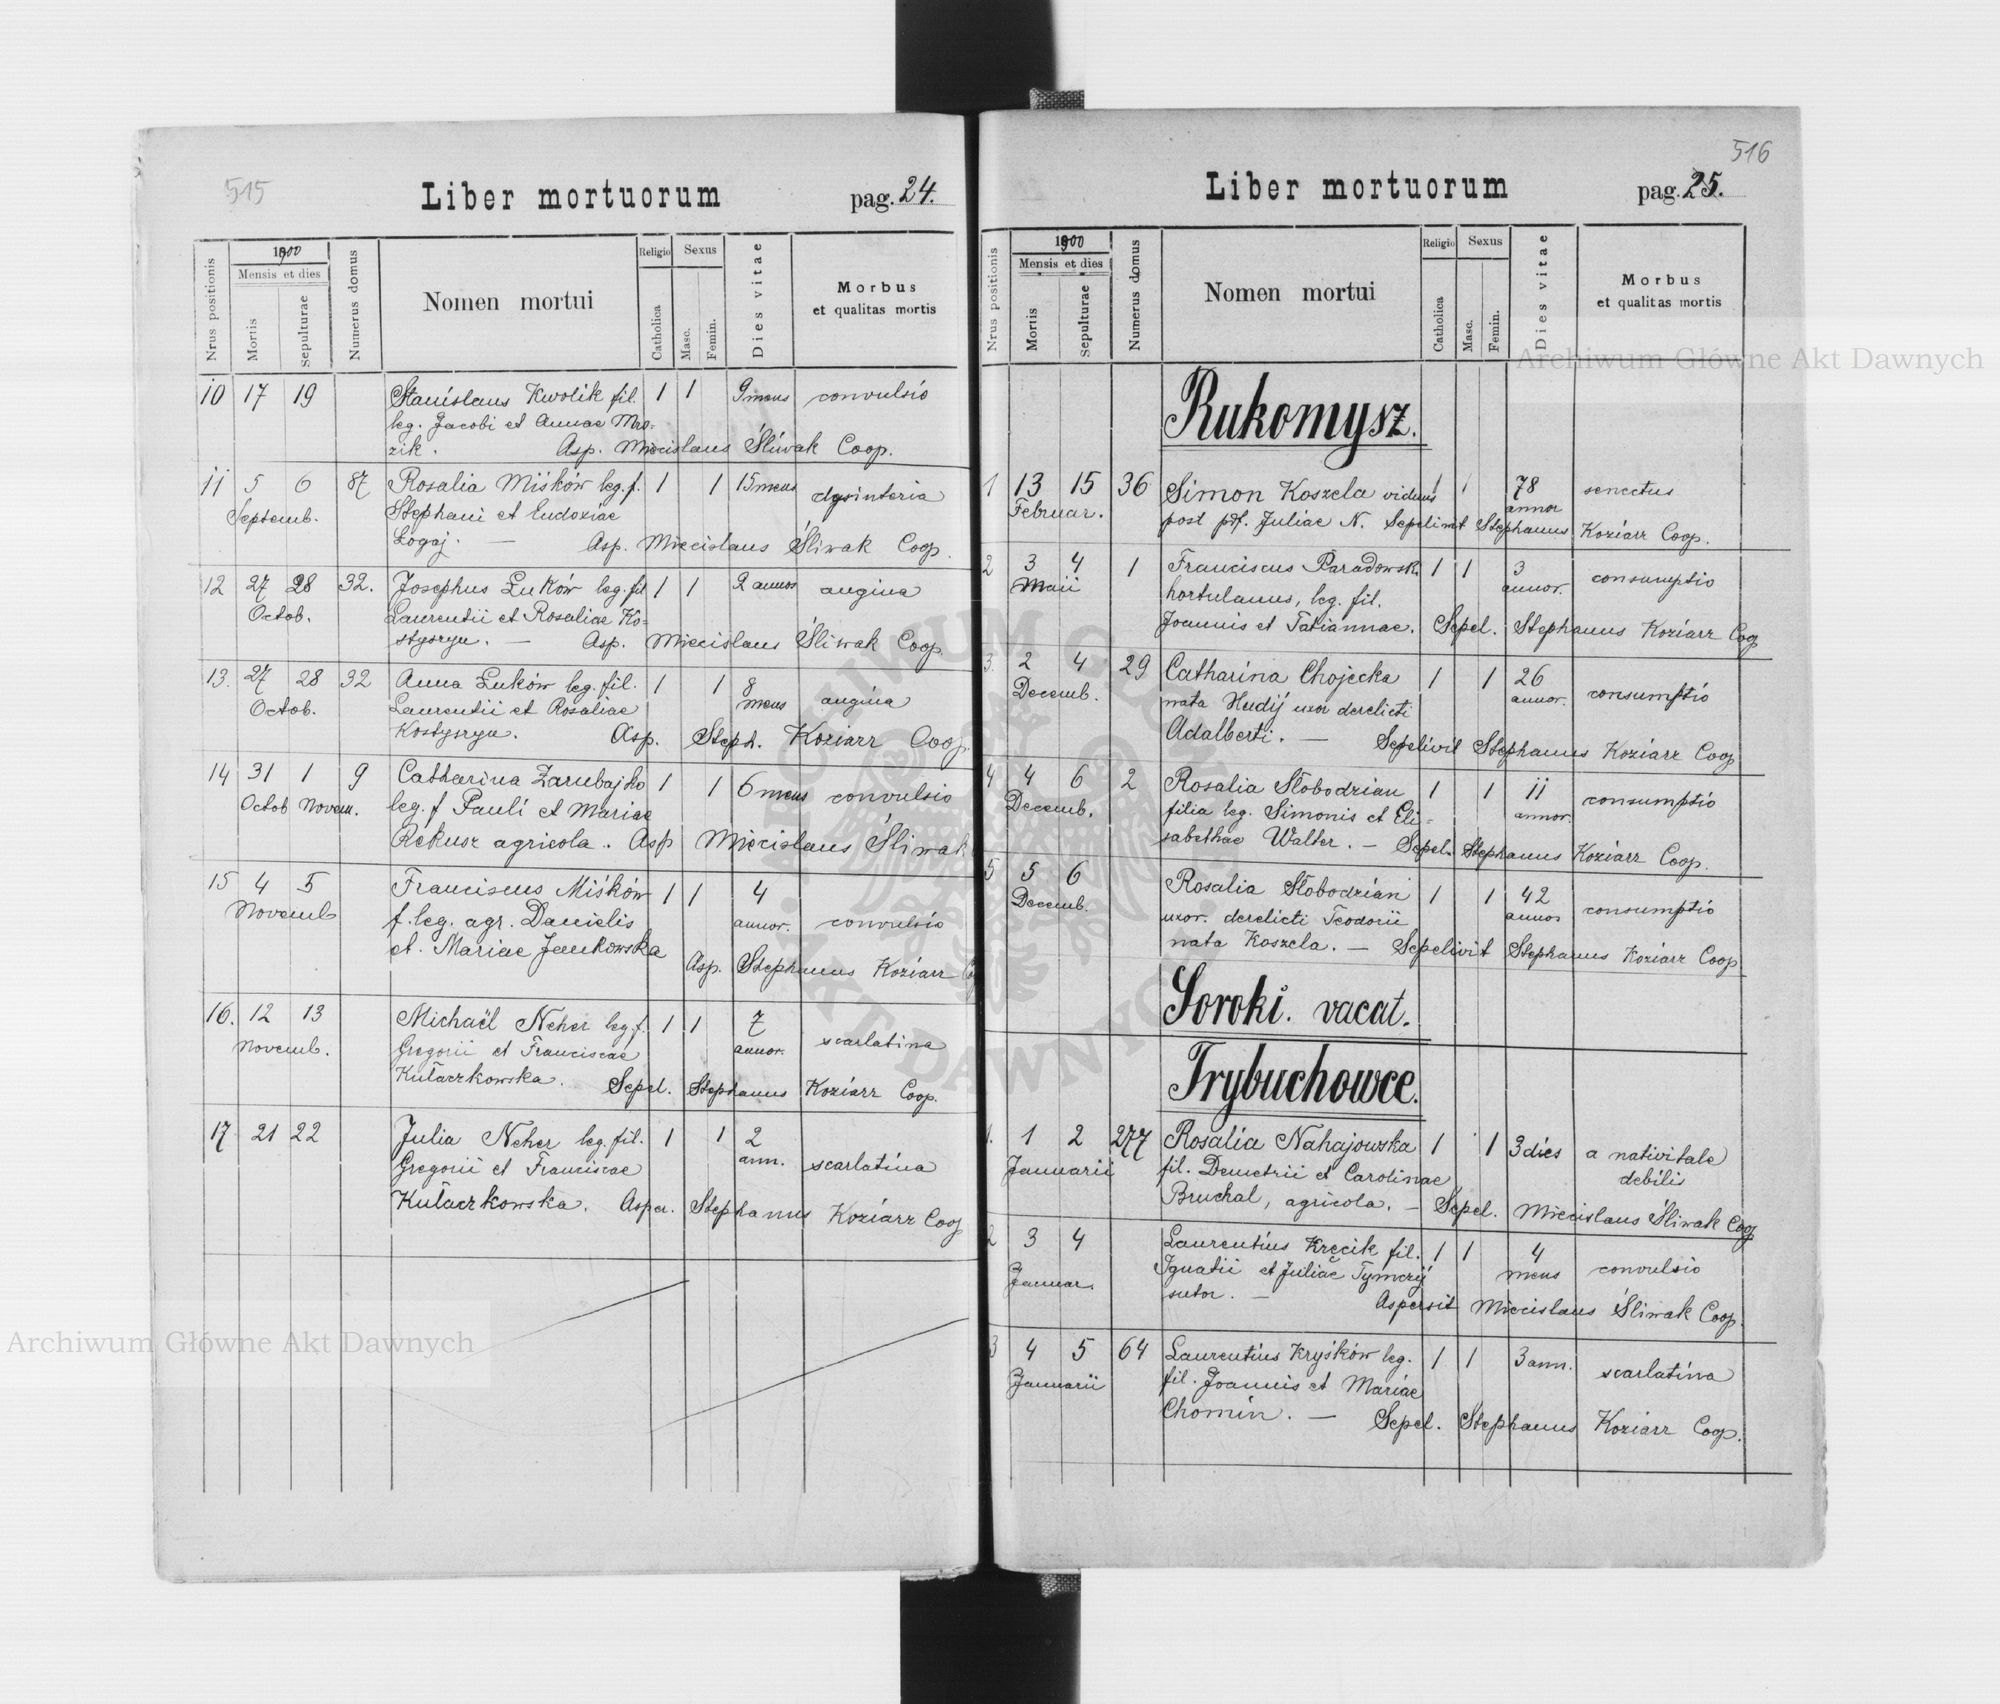 515
Liber mortuorum
pag. 24.
Nrus positionis
1900
Mensis et dies
Mortis
Sepulturae
Numerus domus
Nomen mortui
Religio
Catholica
Sexus
Masc.
Femin.
Dies vitae
Morbus
et qualitas mortis
10 17 19 Stanislaus Kwolik fil. 1 1 9 mens convulsio
leg. Jacobi et Annae Mro-
zik. Asp. Miecislaus Śliwak Coop.
11 5 6 87 Rosalia Miśków leg. f. 1 1 15 mens dysinteria
Septemb. Stephani et Eudoxiae
Łogaj. — Asp. Miecislaus Śliwak Coop.
12 27 28 32. Josephus Łuków leg. fil 1 1 2 annos angina
Octob. Laurentii et Rosaliae Ko-
styszyn. — Asp. Miecislaus Śliwak Coop.
13. 27 28 32 Anna Łuków leg. fil. 1 1 8 angina
Octob. Laurentii et Rosaliae mens
Kostyszyn. Asp. Steph. Koziarz Coop.
14 31 1 9 Catharina Zarubajko 1 1 6 mens convulsio
Octob Novem. leg. f Pauli et Mariae
Rekusz agricola. Asp Miecislaus Śliwak
15 4 5 Franciscus Miśków 1 1 4
Novemb f. leg. agr. Danielis annor. convulsio
et. Mariae Jankowska
Asp. Stephanus Koziarz
16. 12 13 Michaël Neher leg. f. 1 1 7 scarlatina
Novemb. Gregorii et Franciscae annor.
Kułaczkowska. Sepel. Stephanus Koziarz Coop.
17 21 22 Julia Neher leg. fil. 1 1 2
Gregorii et Franciscae ann. scarlatina
Kułaczkowska. Asper. Stephanus Koziarz Coop
516
Liber mortuorum
pag. 25.
Nrus positionis
1900
Mensis et dies
Mortis
Sepulturae
Numerus domus
Nomen mortui
Religio
Catholica
Sexus
Masc.
Femin.
Dies vitae
Morbus
et qualitas mortis
Rukomysz.
1 13 15 36 Simon Koszela viduus 1 1 78 senectus
Februar. post pdf. Juliae N. Sepelivit Stephanus Koziarz Coop.
annor
2 3 4 1 Franciscus Paradowski 1 1 3 consumptio
Maii hortulanus, leg. fil. annor.
Joannis et Tatiannae. Sepel. Stephanus Koziarz Coop
3. 2 4 29 Catharina Chojecka 1 1 26 consumptio
Decemb. nata Hudij uxor derelicti annor.
Adalberti. — Sepelivit Stephanus Koziarz Coop
4 4 6 2 Rosalia Słobodzian 1 1 11 consumptio
Decemb. filia leg. Simonis et Eli- annor.
sabethae Walter. — Sepel. Stephanus Koziarz Coop.
5 5 6 Rosalia Słobodzian 1 1 42 consumptio
Decemb. uxor. derelicti Teodorii annos
nata Koszela. — Sepelivit Stephanus Koziarz Coop
Soroki. vacat.
Trybuchowce.
1. 1 2 277 Rosalia Nahajowska 1 1 3 dies a nativitate
Januarii fil. Demetrii et Carolinae debilis
Bruchal, agricola. — Sepel. Miecislaus Śliwak Coop
2 3 4 Laurentius Kręcik fil. 1 1 4 convulsio
Januar. Ignatii et Juliae Tymczij mens
sutor. — Aspersit Miecislaus Śliwak Coop.
3 4 5 64 Laurentius Kryśków leg. 1 1 3 ann. scarlatina
Januarii fil. Joannis et Mariae
Chomin. — Sepel. Stephanus Koziarz Coop.
Archiwum Główne Akt Dawnych
Archiwum Główne Akt Dawnych